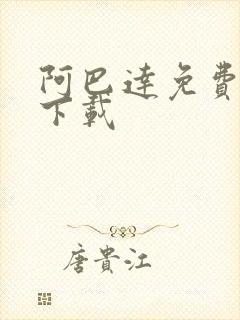 阿巴達免費
下載
唐貴江